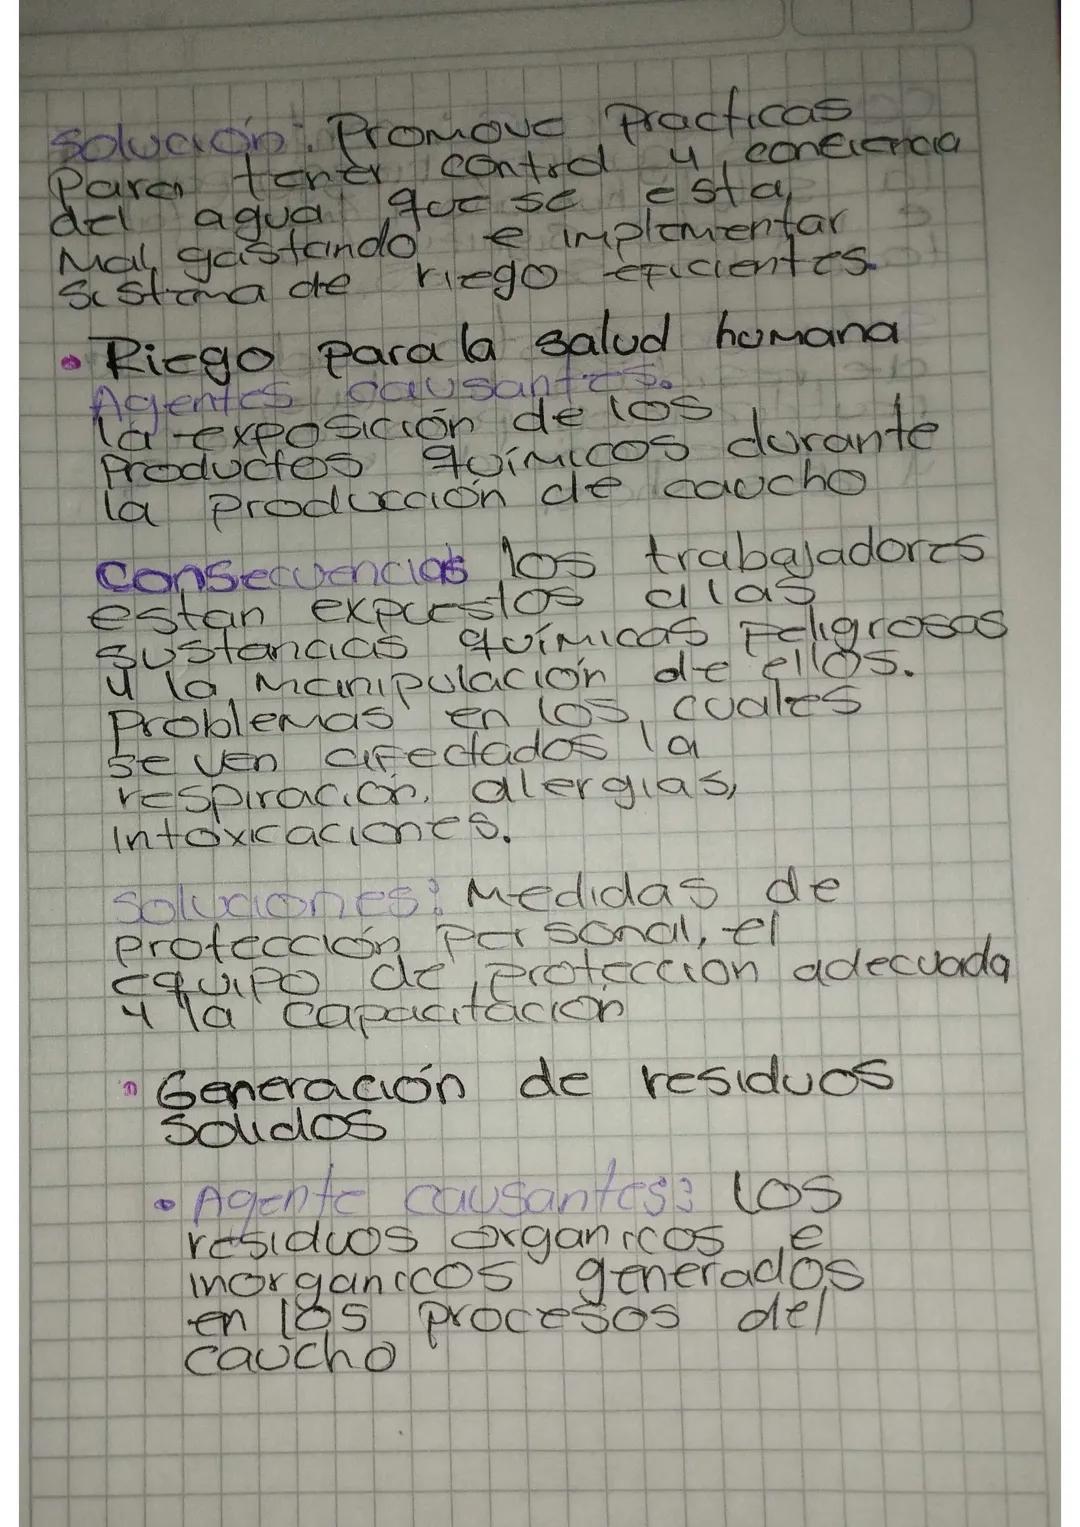 Solución: Promove Practicas
Para tener control y conciencia
del agua que se esta
Mal gastando e implementar
Sistema de riego eficientes.
• Riego para la salud humana
Agentes causantes.
la exposición de los
Productos químicos durante
la producción de caucho
Consecuencias los trabajadores
estan expuestos a las
sustancias químicas Peligrosas
y la manipulación de ellos.
Problemas en los cuales
se ven afectados la
respiración, alergias,
Intoxicaciones.
Soluciones: Medidas de
protección Personal, el
equipo de protección adecuada
y la capacitación
• Generación de residuos
solidos
• Agente causantes: los
residuos organicos e
inorganicos generados
en los procesos del
caucho